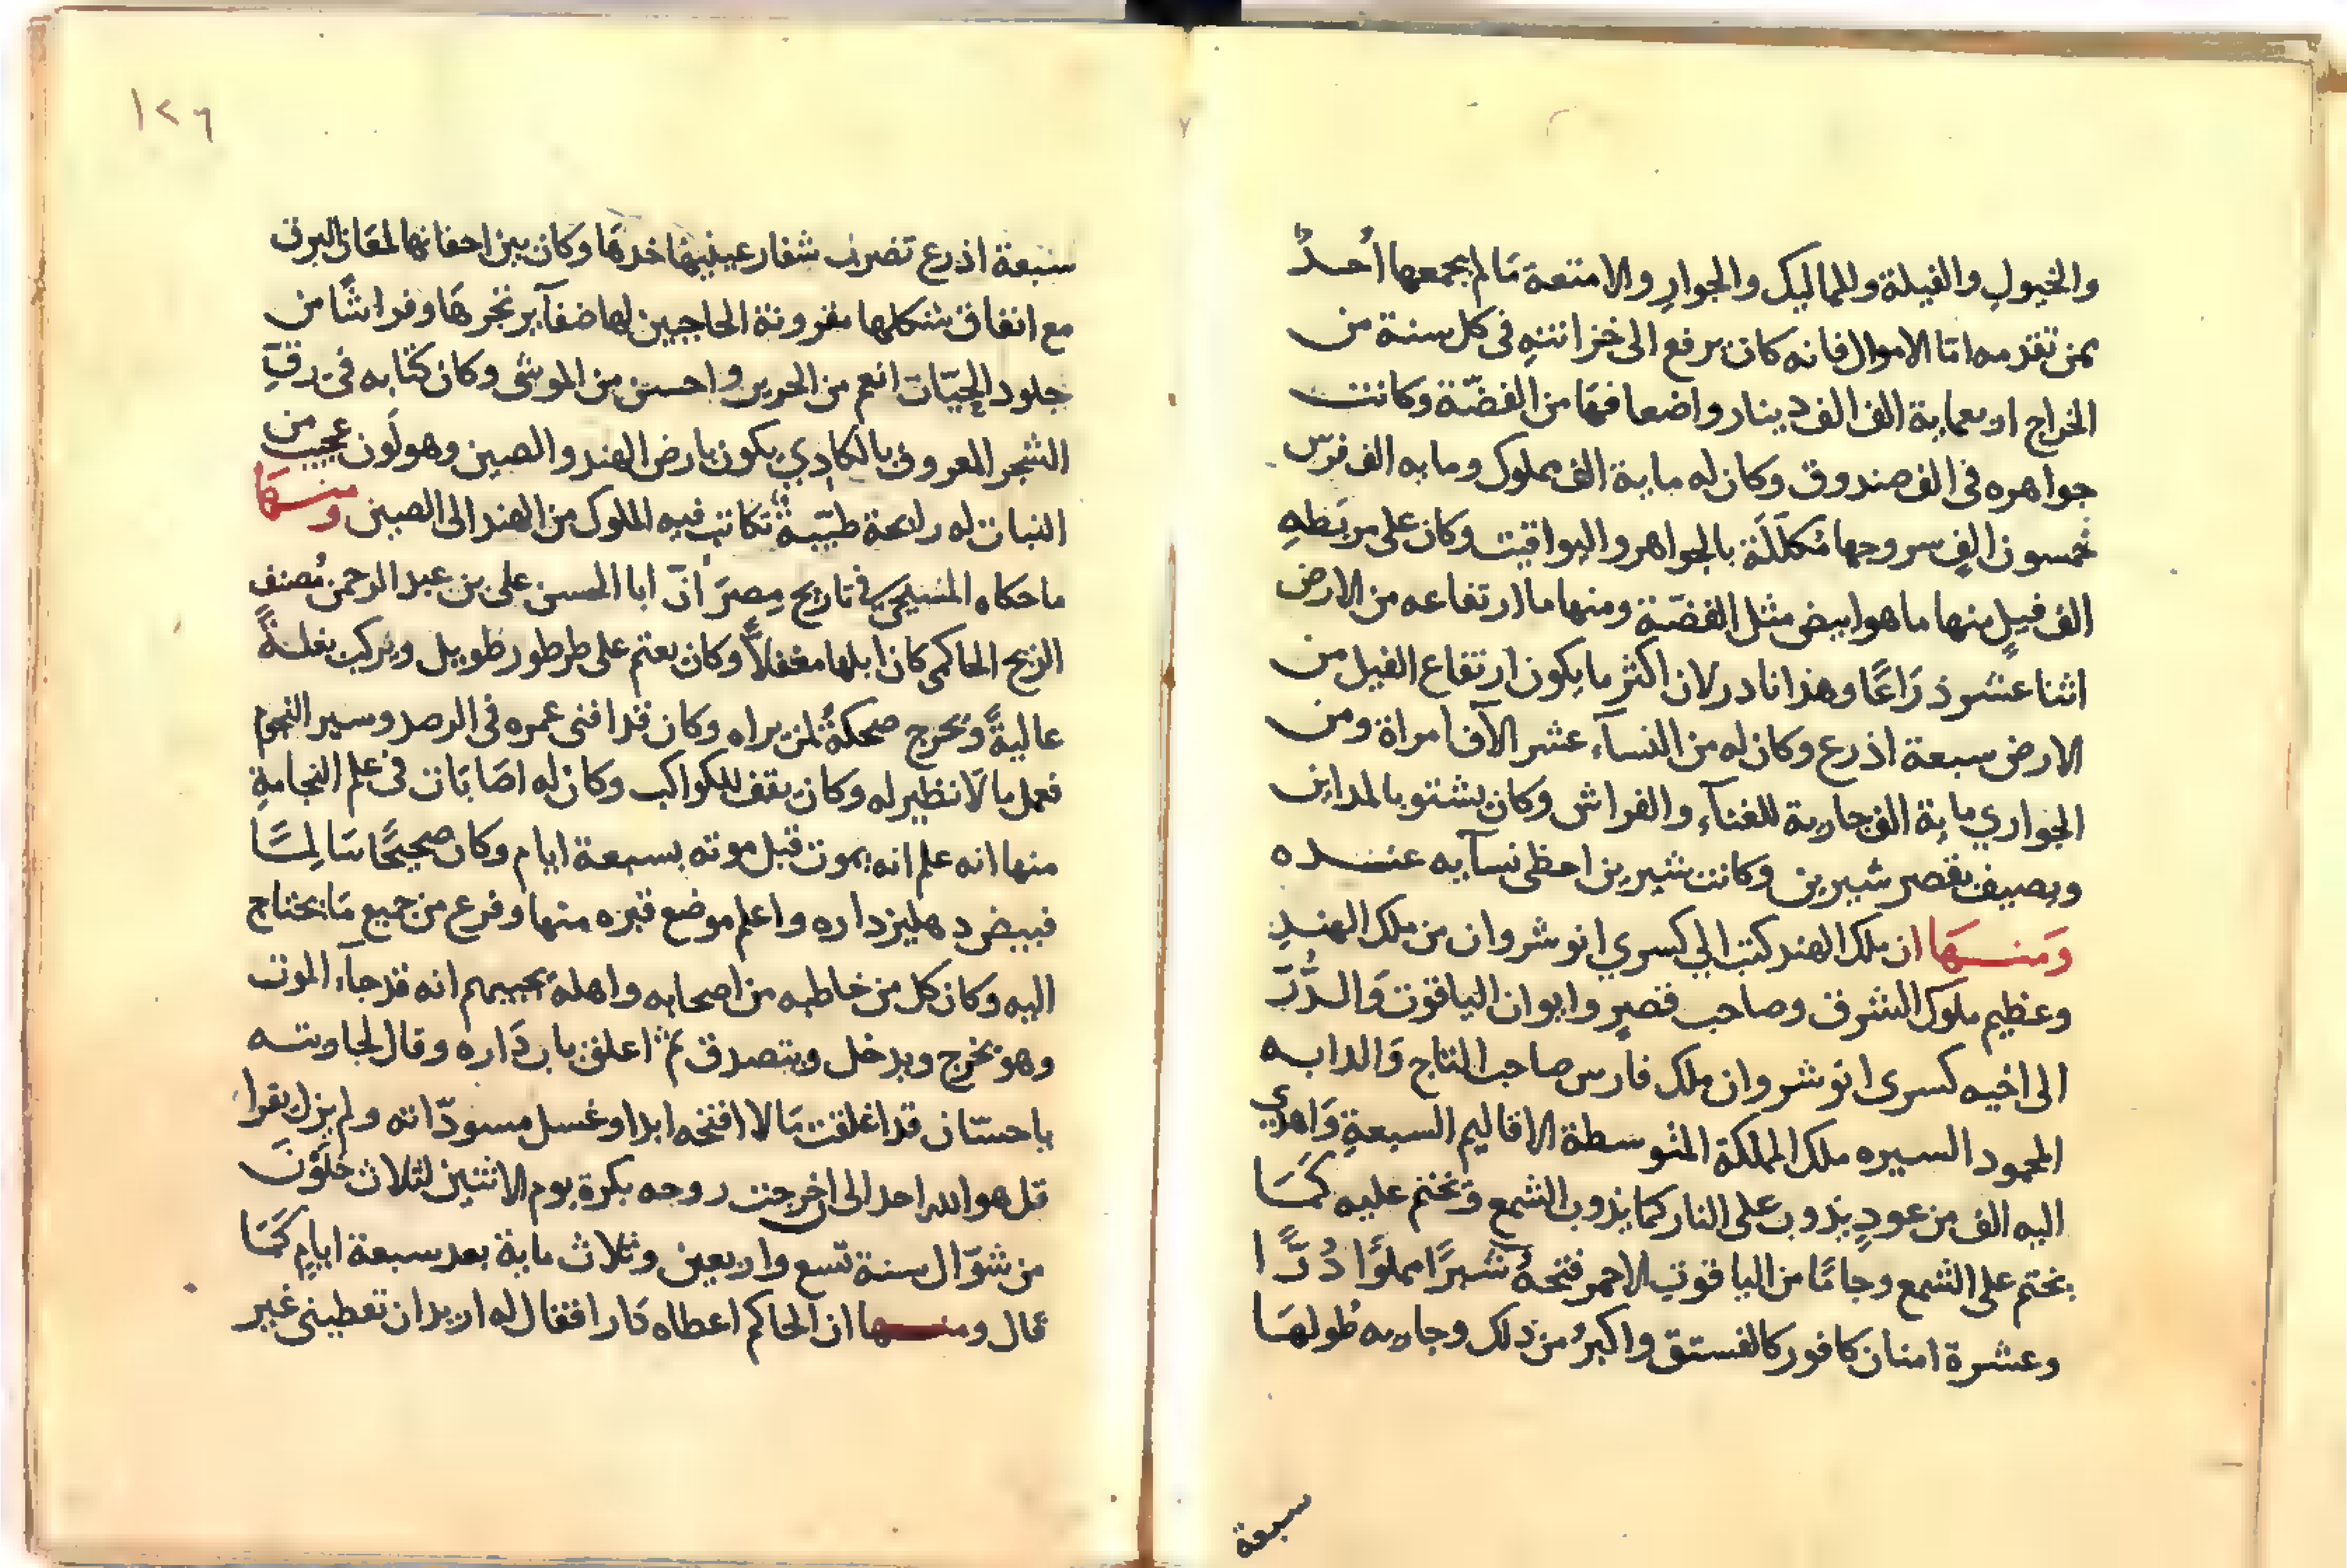 والخيول والفيلة والمماليك والجوار والامتعة مَا لم يجمعها أحدٌ
ممن تقدمه امّا الاموال فانه كان يرفع الى خزانته فى كل سنة من
الخراج اربعماية الف الف دينار واضعافهَا من الفضّة وكانت
جواهره فى الف صندوق وكان له ماية الف مملوك ومايه الف فرس
خمسون الفٍ سروجها مُكلَلَة بالجواهر واليواقيت وكان على مربَطهِ
الف فيلٍ منها ما هو ابيض مثل الفضّة ومنها ما ارتفاعه من الارض
اثنا عشر ذرَاعًا وهذا نادر لان اكثر ما يكون ارتفاع الفيل من
الارض سبعة اذرع وكان له من النسآء عشر الآف امراة ومن
الجواري ماية الف جارية للغنآء والفراش وكان يشتو بالمداين
ويصيف بقصر شيرين وكانت شيرين احظى نسآيه عنده
وَمنهَا ان ملك الهند كتب الي كسري انوشروان من ملك الهندِ
وعظيم ملوك الشرق وصاحب قصرٍ وايوان الياقوت وَالدُّرّ
الى اخيه كسرى انوشروان ملك فارس صاحب التاج وَالرايه
المحمود السيره ملك المملكة المتوسطة الاقاليم السبعةِ وَاهدي
اليه الف من عودٍ يذوب على النار كما يذوب الشمع وتختم عليه كَمَا
يختم على الشمع وجامًا من الياقوت الاحمر فتحهُ شبرًا مملوًا دُرًّا
وعشرة امنان كافور كالفستق واكبرُ من ذلك وجاريه طُولهَا
سبعة
١٢٦
سبعة اذرع تضرب شفار عينيهَا خدهَا وكان بين اجفانها لمعَان البرق
مع اتقان شكلها مقرونة الحاجبين لها ضفآير تجرهَا وفراشًا من
جلود الحيّات انعم من الحرير واحسن من الموشى وكان كتابه فى رقِ
الشجر المعروف بالكادِي يكون بارض الهند والصين وهو لَون عجيب من
النبات له رايحة طيّبة تكاتب فيه الملوك من الهند الى الصين ومنهَا
ما حكاه المسيحي في تاريخ مِصرَ انّ ابا الحسن على بن عبد الرحمن مُصنف
الزيج الحاكمى كان ابلها مغفلاً وكان يعتم على طرطور طويل ويركب بغلةً
عاليةً ويخرج ضحكةً لمن يراه وكان قد افنى عمره فى الرصد وسير النجوم
فعمل ما لَا نظير له وكان يقف للكواكب وكان له اصَابَات فى علم النجامةِ
منها انه علم انه يموت قبل موته بسبعة ايام وكان صحيحًا سَالِمًا
فبيض دهليز داره واعلم موضع قبره منها وفرغ من جميع مَا يحتاج
اليه وكان كل من خاطبه من اصحابه واهله يجيبهم انه قد جآء الموت
وهو يخرج ويدخل ويتصدق ثم اغلق باب دَاره وقال لجاريته
يا حسّان قد اغلقت مَا لا افتحه ابدا وغسل مسودّاته ولم يزل يقرا
قل هو الله احد الى ان خرجت روحه بكرة يوم الاثنين لثلاث خلَوْنَ
من شوّال سنة تسع واربعين وثلاث ماية بعد سبعة ايامٍ كَمَا
قال ومنها ان الحاكم اعطاه دَارا فقال له اريد ان تعطينى غير